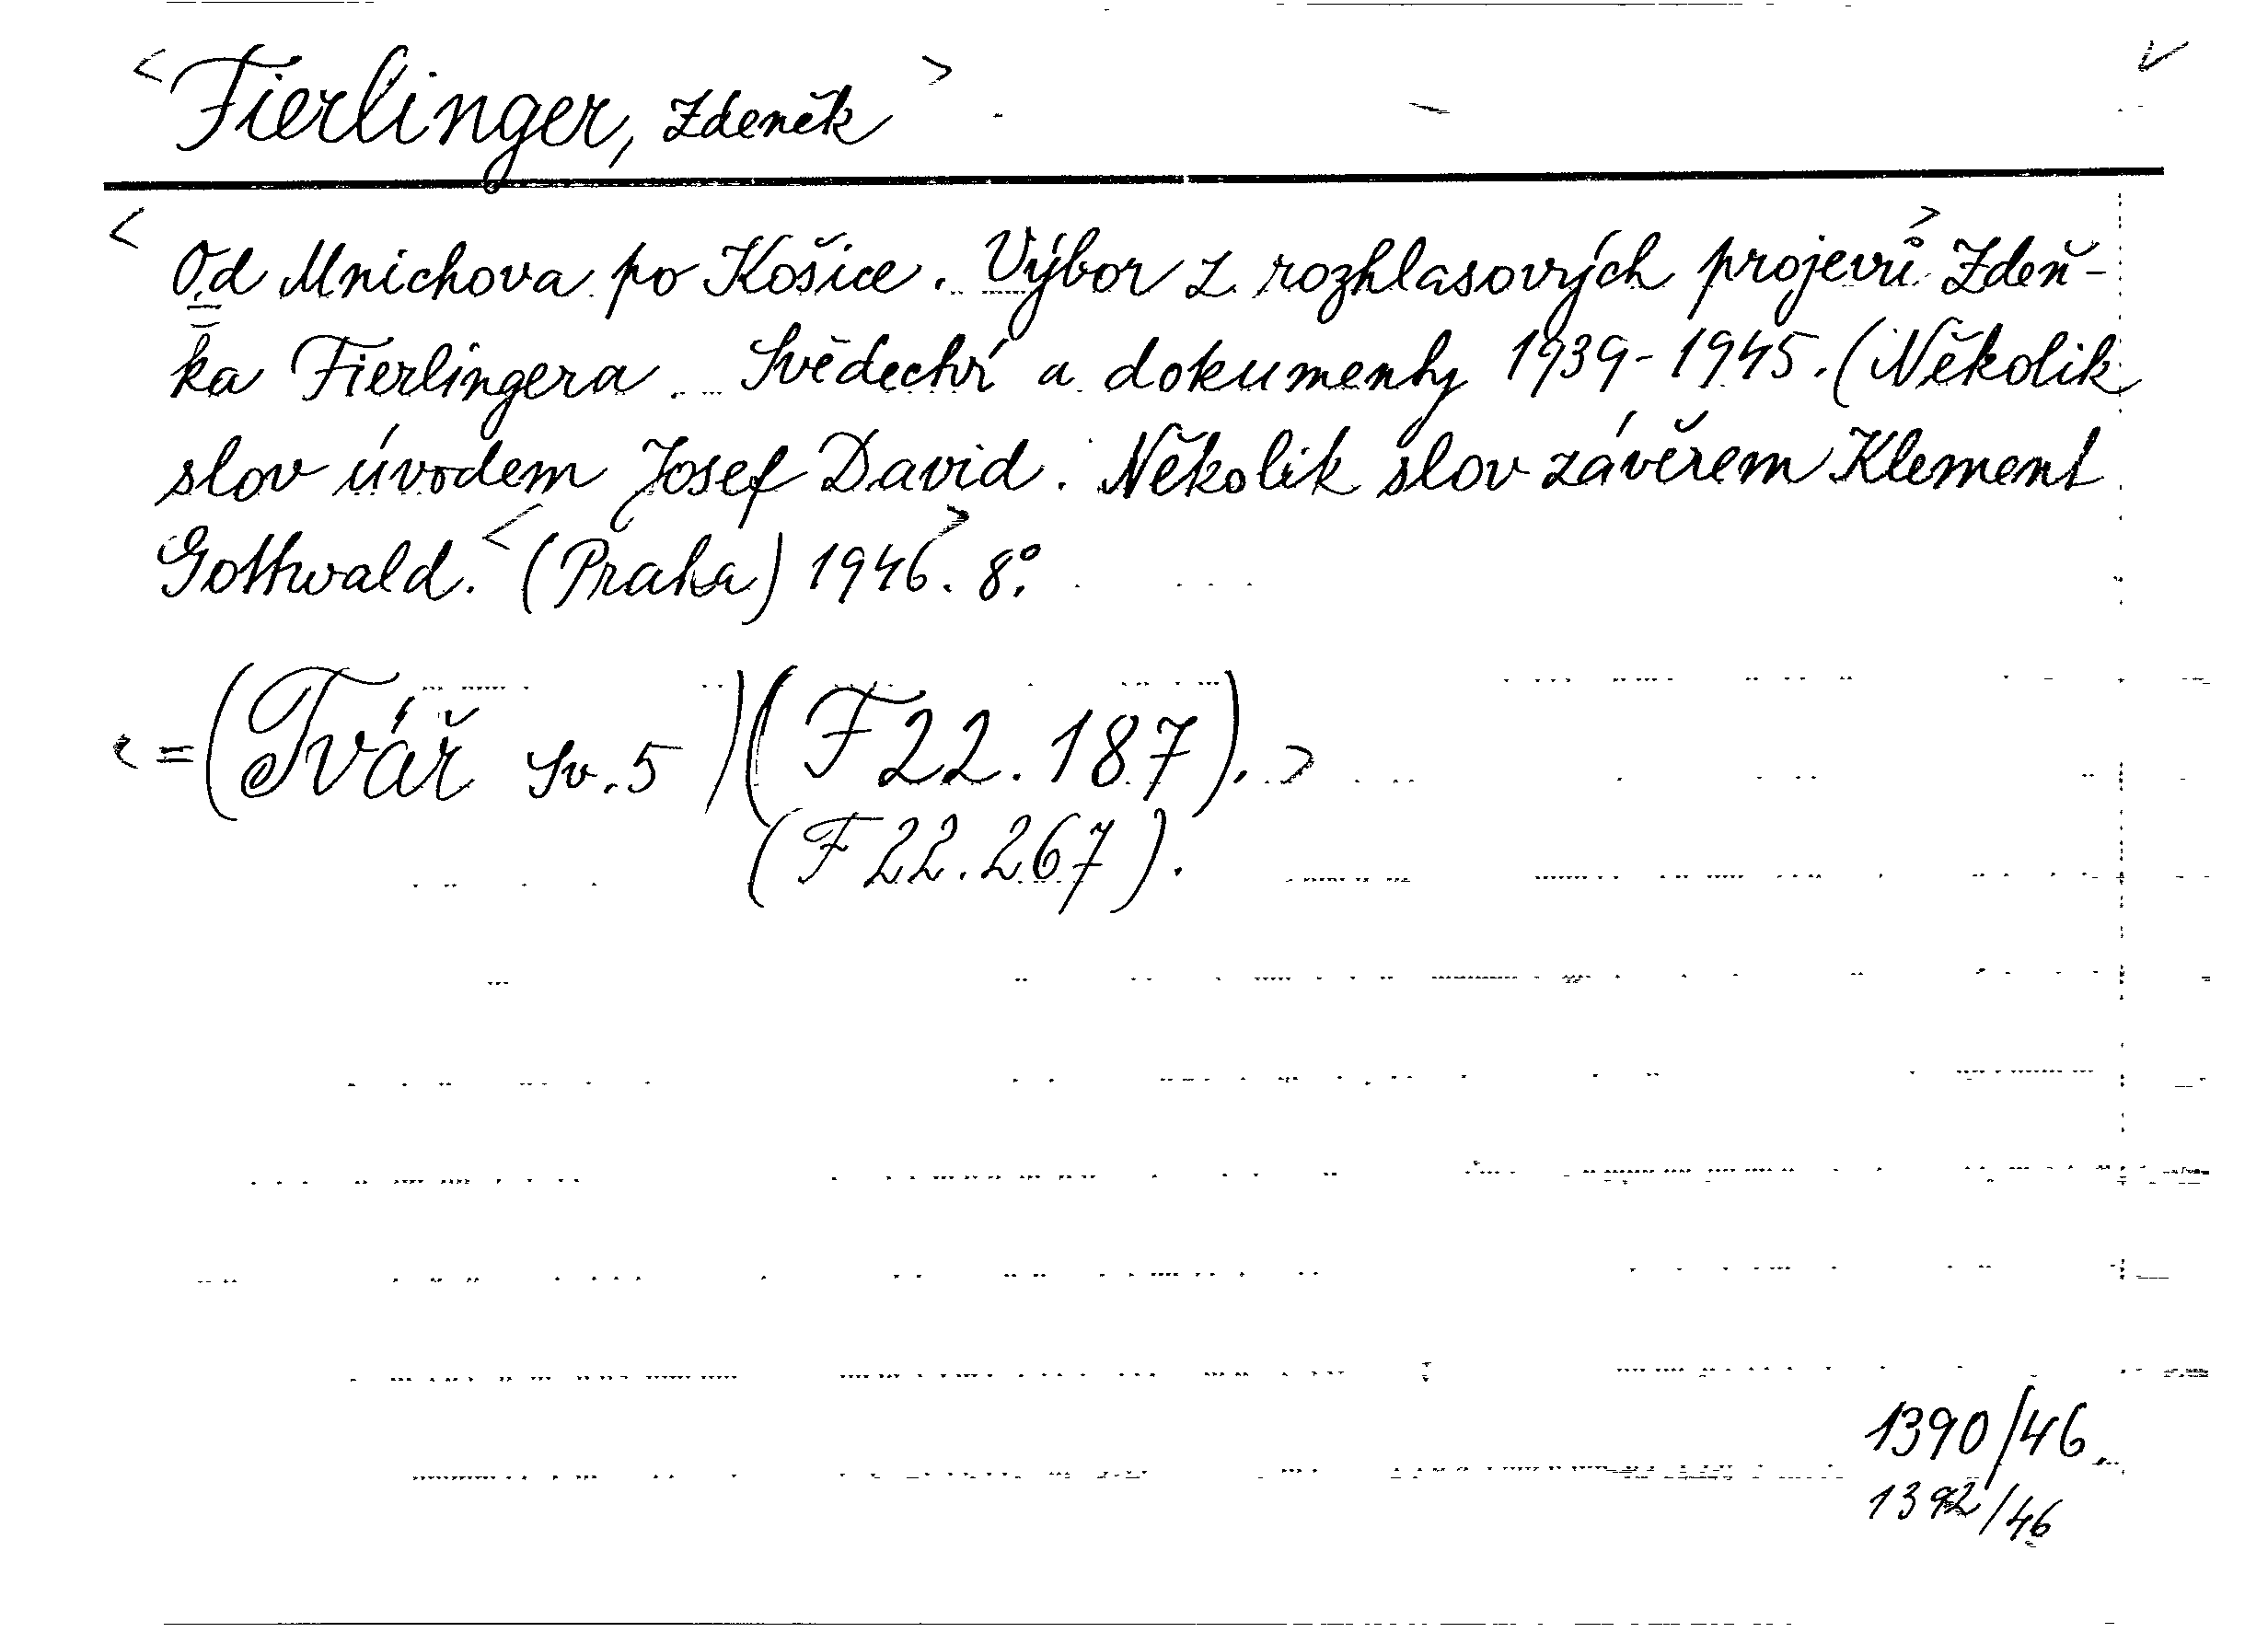 <Fierlinger, Zdeněk>
<Od Mnichova po Košice. Výbor z rozhlasových projevů> Zdeň-
ka Fierlingera. Svědectví a dokumenty 1939-1945. (Několik
slov úvodem Josef David. Několik slov závěrem Klement
Gottwald. <(Praha) 1946>. 8°.
<=(Tvář Sv. 5)(F 22.187).>
(F 22.267).
1390/46.
1392/46